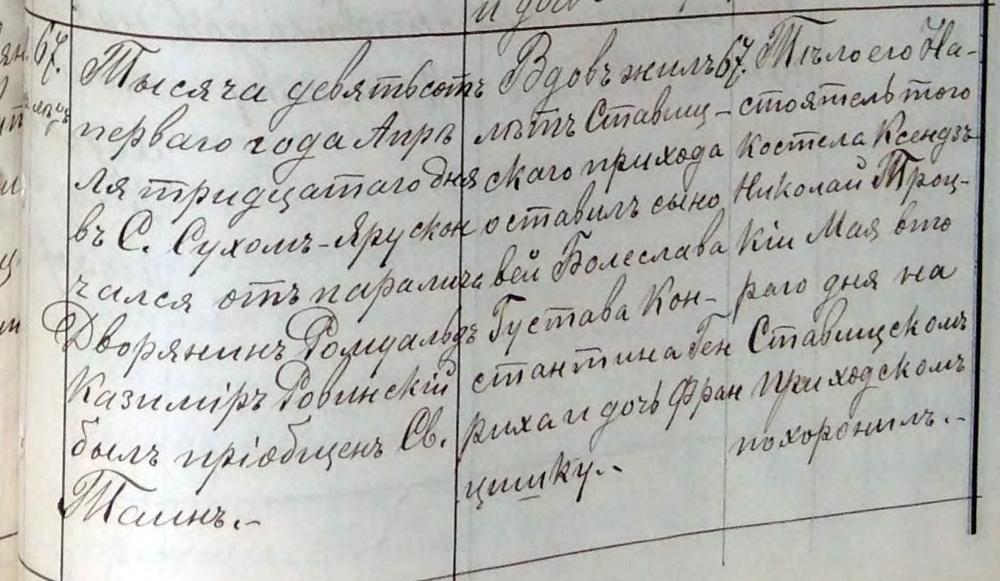 67.
Тысяча девятьсотъ
перваго года Апрѣ
ля тридцатаго дня
въ С. Сухомъ-Яру скон
чался отъ паралича
Дворянинъ Ромуальдъ
Казиміръ Ровинскій
былъ пріобщенъ Св.
Таинъ.-
Вдовъ жилъ 67.
лѣтъ Ставищ-
скаго прихода
оставилъ сыно
вей Болеслава
Густава Кон-
стантина Ген
риха и дочь Фран
цишку.-
Тѣло его На-
стоятель того
Костела Ксендзъ
Николай Троц-
кій Мая вто
раго дня на
Ставищскомъ
приходскомъ
похоронилъ.-